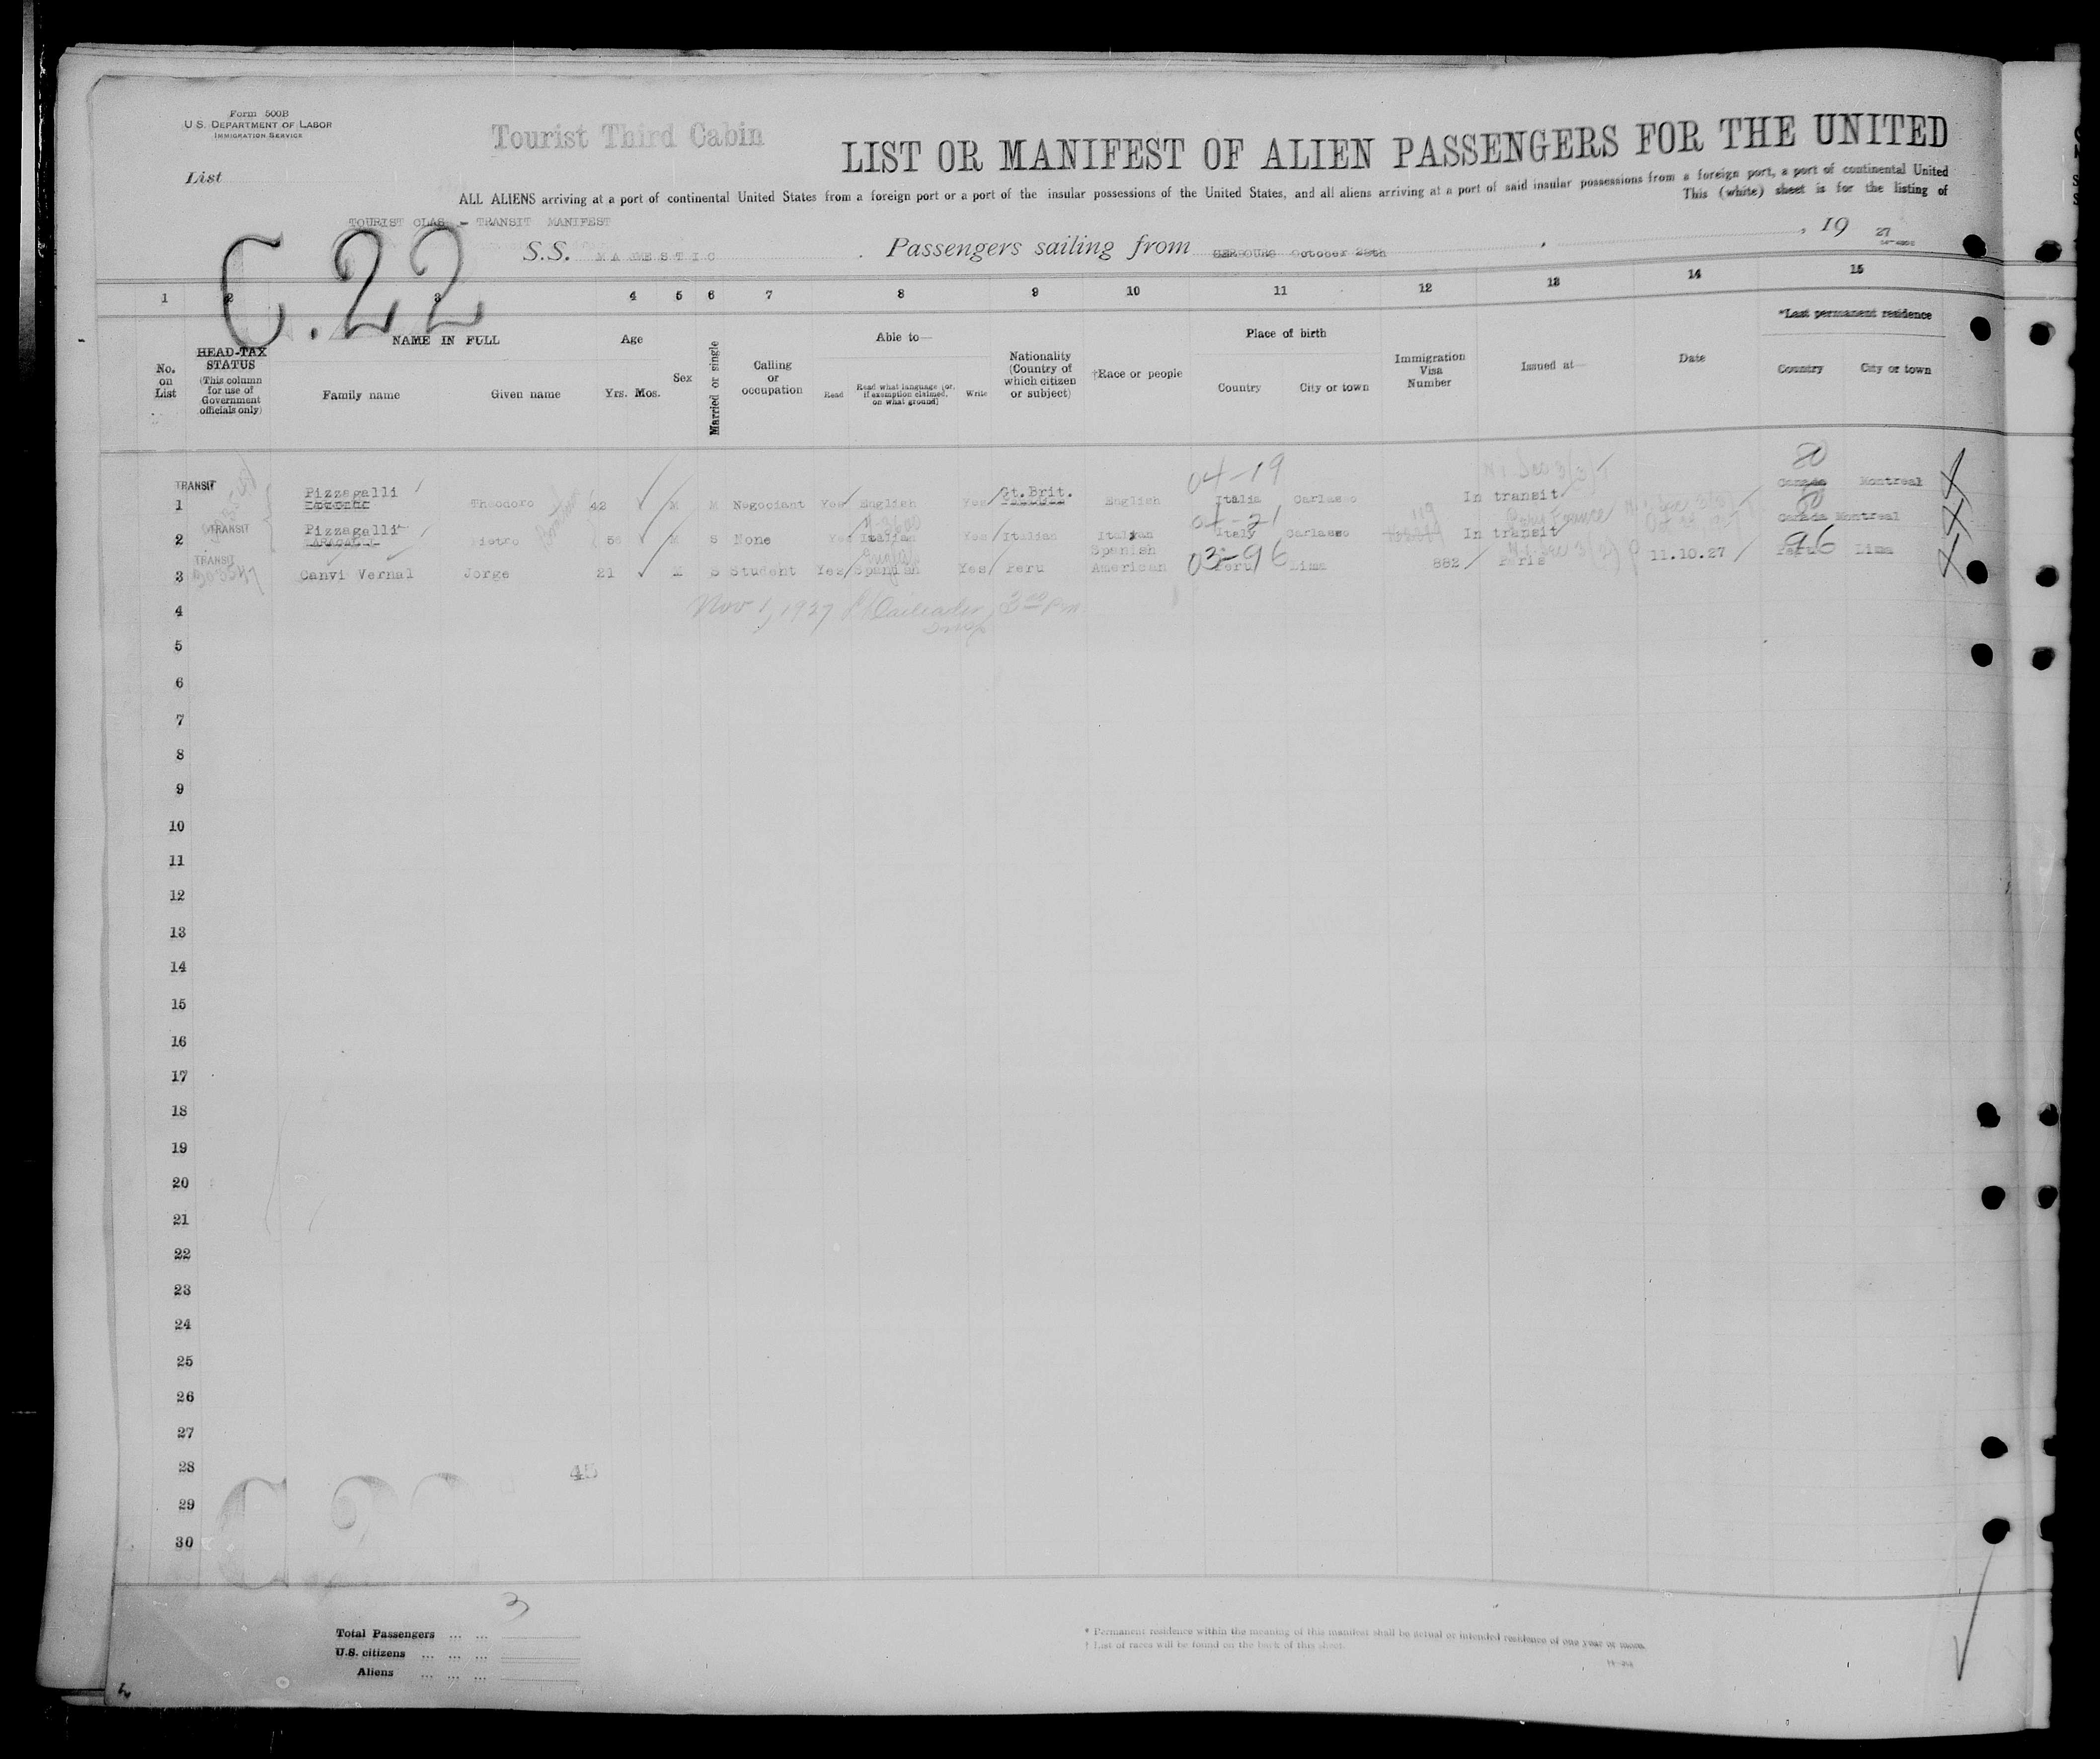 Form 500B
U.S. DEPARTMENT OF LABOR
IMMIGRATION SERVICE
Tourist Third Cabin
LIST OR MANIFEST OF ALIEN PASSENGERS FOR THE UNITED
List
ALL ALIENS arriving at a port of continental United States from a foreign port or a port of the insular possessions of the United States, and all aliens arriving at a port of said insular possessions from a foreign port, a port of continental United
This (white) sheet is for the listing of
TOURIST CLAS - TRANSIT MANIFEST
C.22
S.S. MAJESTIC Passengers sailing from CERBOURG October 28th, 19 27
1 2 3 4 5 6 7 8 9 10 11 12 13 14 15
No. on List
HEAD-TAX STATUS
(This column for use of Government officials only)
NAME IN FULL
Family name Given name
Age
Yrs. Mos.
Sex
Married or single
Calling or occupation
Able to—
Read Read what language [or, if exemption claimed, on what ground] Write
Nationality (Country of which citizen or subject)
†Race or people
Place of birth
Country City or town
Immigration Visa Number
Issued at—
Date
*Last permanent residence
Country City or town
04-19 80
TRANSIT
1 Pizzagalli Theodoro 42 M M Negociant Yes English Yes Gt. Brit. English Italia Carlasso In transit Canada Montreal
04-21 80
TRANSIT
2 Pizzagalli Pietro 56 M S None Yes Italian Yes Italian Italian Italy Carlasso In transit Canada Montreal
TRANSIT
3 Canvi Vernal Jorge 21 M S Student Yes Spanish Yes Peru Spanish American 03-96 Peru Lima 882 Paris 11.10.27 96 Peru Lima
4 Nov 1, 1927 3 00 Pm
5
6
7
8
9
10
11
12
13
14
15
16
17
18
19
20
21
22
23
24
25
26
27
28 45
29
30
3
Total Passengers ... ...
U.S. citizens ... ... ...
Aliens ... ... ...
* Permanent residence within the meaning of this manifest shall be actual or intended residence of one year or more.
† List of races will be found on the back of this sheet.